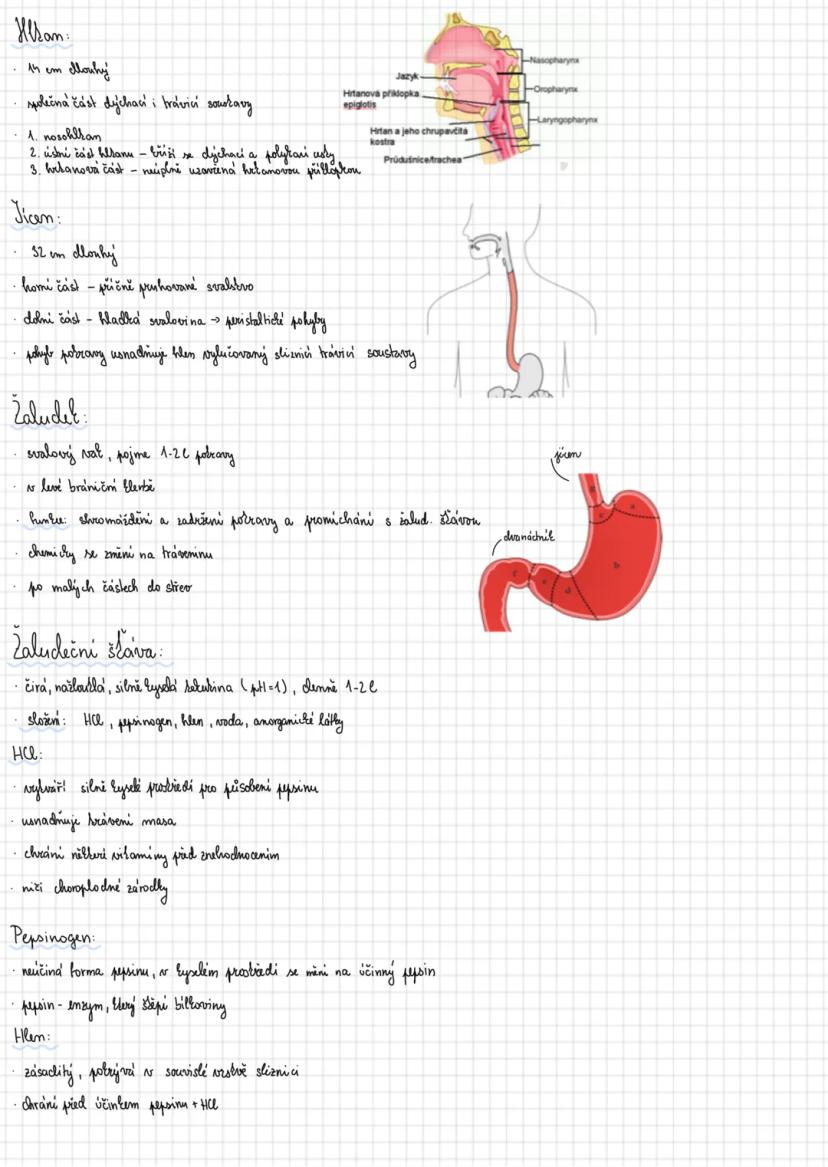 Hltan:
· 14 cm dlouhý
· společná část dýchací i trávicí soustavy
· 1. nosohltan
2. ústní část hltanu – kříží se dýchací a polykací cesty
3. hrtanová část – neúplně uzavřená hrtanovou příklopkou
Jazyk
Hrtanová příklopka
epiglotis
Hrtan a jeho chrupavčitá
kostra
Průdušnice/trachea
Nasopharynx
Oropharynx
Laryngopharynx
Jícen:
· 32 cm dlouhý
· horní část – příčně pruhované svalstvo
· dolní část – hladká svalovina → peristaltické pohyby
· pohyb potravy usnadňuje hlen vylučovaný sliznicí trávicí soustavy
Žaludek:
· svalový vak, pojme 1-2l potravy
· v levé brániční klenbě
· funkce: shromáždění a zadržení potravy a promíchání s žalud. šťávou
· chemicky se změní na tráveninu
· po malých částech do střev
jícen
dvanáctník
Žaludeční šťáva:
· čirá, nažloutlá, silně kyselá tekutina (pH=1), denně 1-2l
· složení: HCl, pepsinogen, hlen, voda, anorganické látky
HCl:
· vytváří silně kyselé prostředí pro působení pepsinu
· usnadňuje trávení masa
· chrání některé vitamíny před znehodnocením
· ničí choroplodné zárodky
Pepsinogen:
· neúčiná forma pepsinu, v kyselém prostředí se mění na účinný pepsin
· pepsin - enzym, který štěpí bílkoviny
Hlen:
· zásaditý, pokrývá v souvislé vrstvě sliznici
· chrání před účinkem pepsinu + HCl